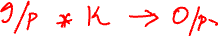 I/p * K → O/p